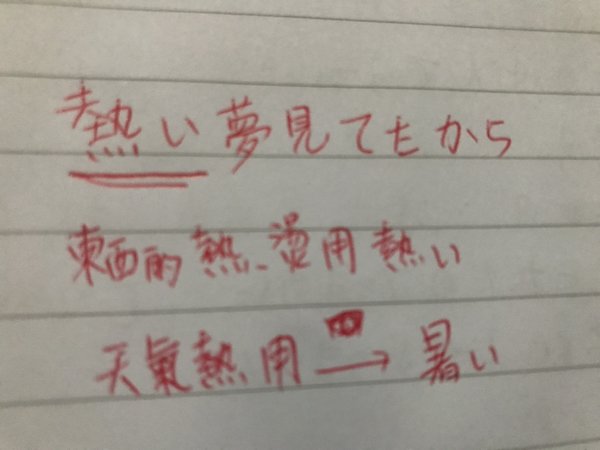 熱い夢見てたから
東西的熱、燙用熱い
天氣熱用→暑い